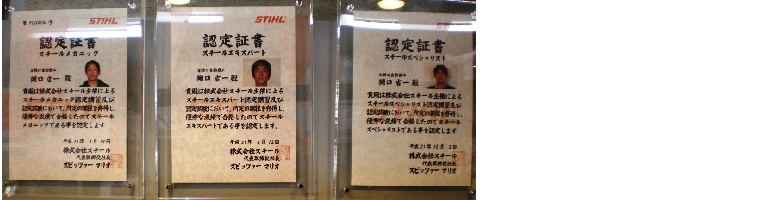 STIHL
認定証書
スチールメカニック
樋口 吉一 殿
貴殿は株式会社スチール主催による
スチールメカニック認定講習及び
認定試験において、所定の課程を修得し
優秀な成績で合格したのでスチール
メカニックである事を認定します
株式会社スチール
代表取締役社長
スピッツァー マリオ
STIHL
認定証書
スチールエキスパート
樋口 吉一 殿
貴殿は株式会社スチール主催による
スチールエキスパート認定講習及び
認定試験において、所定の課程を修得し、
優秀な成績で合格したのでスチール
エキスパートである事を認定します。
株式会社スチール
代表取締役社長
スピッツァー マリオ
STIHL
認定証書
スチールスペシャリスト
樋口 吉一 殿
貴殿は株式会社スチール主催による
スチールスペシャリスト認定講習及び
認定試験において、所定の課程を修得し、
優秀な成績で合格したのでスチール
スペシャリストである事を認定します。
平成21年12月2日
株式会社スチール
代表取締役社長
スピッツァー マリオ